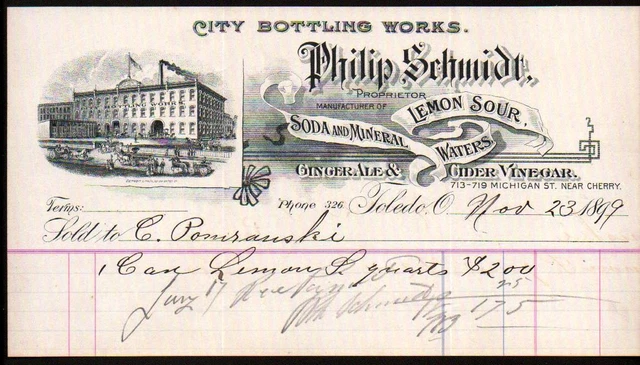 CITY BOTTLING WORKS.
Philip Schmidt,
PROPRIETOR
MANUFACTURER OF
LEMON SOUR,
SODA AND MINERAL WATERS
GINGER ALE & CIDER VINEGAR.
713-719 MICHIGAN ST. NEAR CHERRY.
BOTTLING WORKS
Terms: Phone 326 Toledo, O. Nov 23 1899
Sold to C. Pomranski
1 Case Lemon S. quarts $2.00
25
Jany 17 Rec Payment 1.75
Ph Schmidt